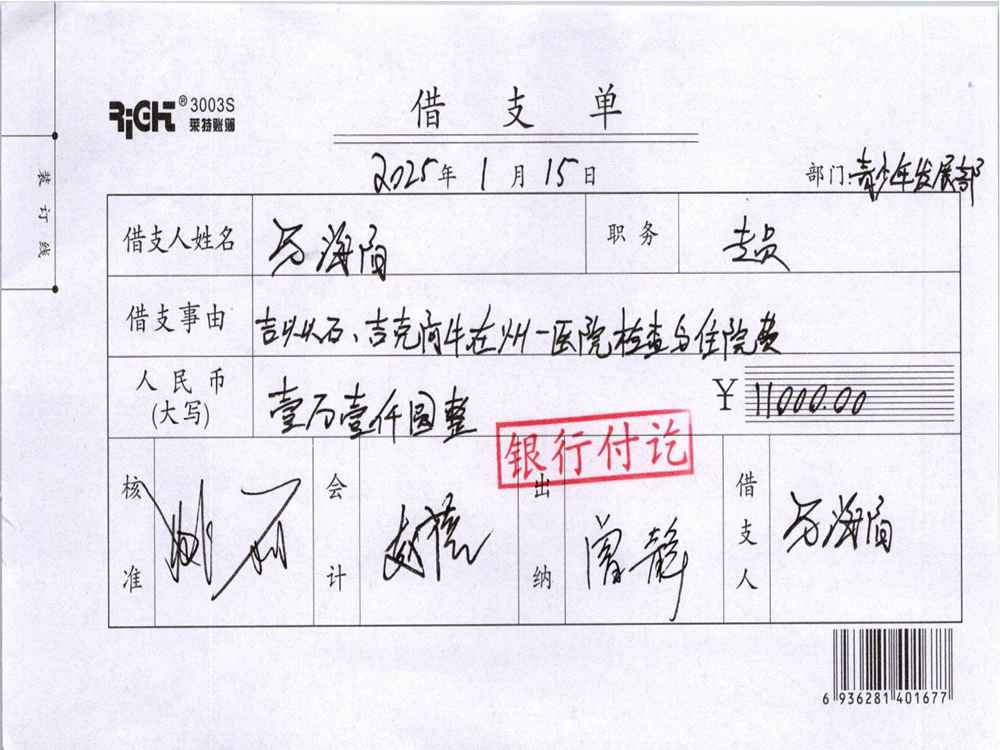 RiGHT® 3003S
莱特账簿
借支单
2025年1月15日
部门:青少年发展部
装订线
借支人姓名 马海阳 职务 专员
借支事由 吉以以石、吉克阿牛在州一医院检查与住院费
人民币(大写) 壹万壹仟圆整 ¥11000.00
银行付讫
核准
会计
出纳 曾静
借支人 马海阳
6 936281 401677